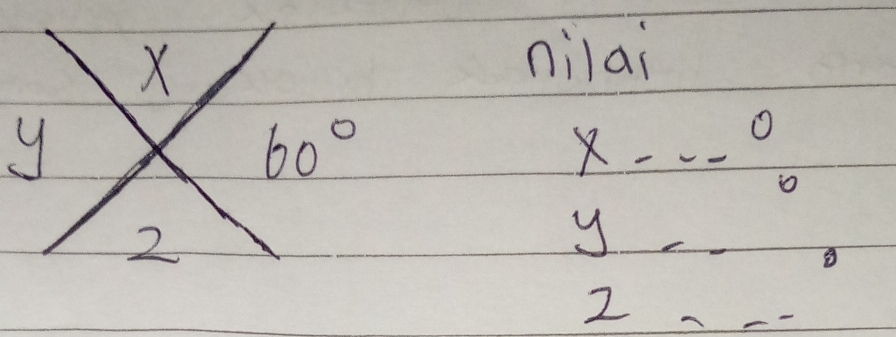 x
y 60°
2
nilai
x - - - °
y - - °
2 - - - °